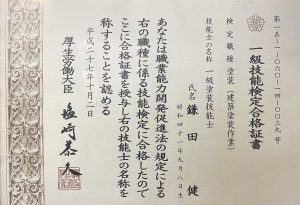 第一五-一-〇六〇-一四-〇〇三九号
一級技能検定合格証書
検定職種 塗装(建築塗装作業)
技能士の名称 一級塗装技能士
氏名 鎌田 健
昭和四十一年九月八日生
あなたは職業能力開発促進法の規定による
右の職種に係る技能検定に合格したので
ここに合格証書を授与し右の技能士の名称を
称することを認める
平成二十七年十月二日
厚生労働大臣 塩崎恭久